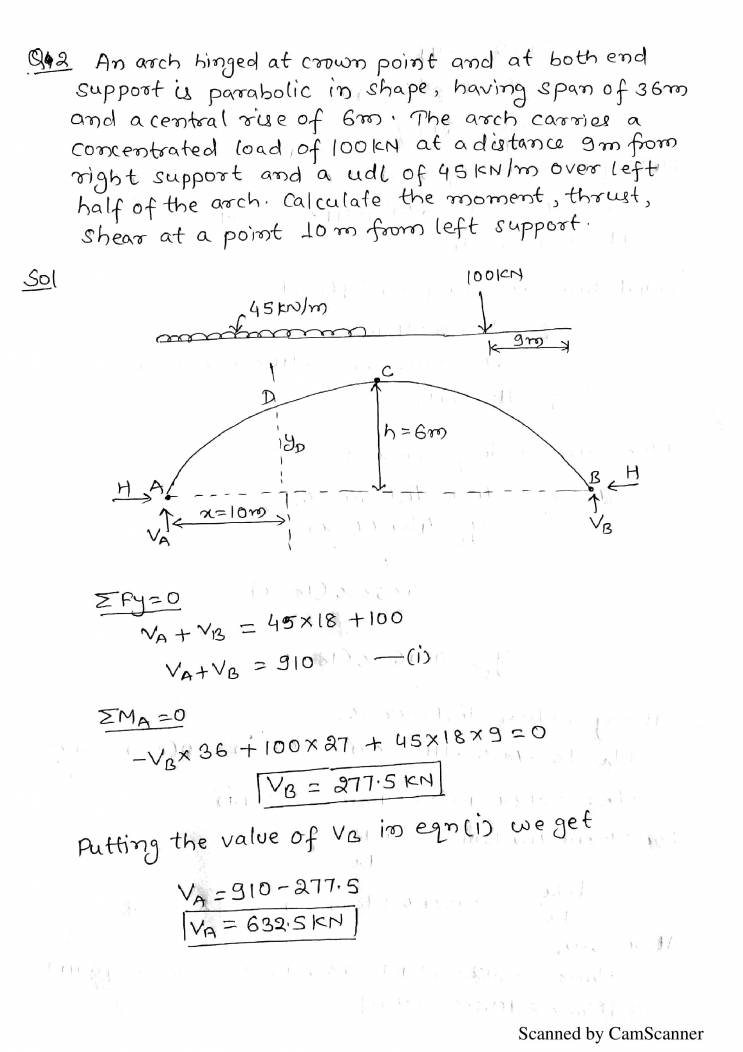 Q42 An arch hinged at crown point and at both end
support is parabolic in shape, having span of 36m
and a central rise of 6m. The arch carries a
concentrated load of 100KN at a distance 9m from
right support and a udl of 45KN/m over left
half of the arch. Calculate the moment, thrust,
shear at a point 10m from left support.
Sol
100KN
45KN/m
9m
C
D
yD
h=6m
H A
B H
x=10m
VA
VB
ΣFy=0
VA + VB = 45×18 +100
VA+VB = 910 —(i)
ΣMA=0
-VB×36 +100×27 + 45×18×9=0
VB = 277.5 KN
Putting the value of VB in eqn(i) we get
VA = 910-277.5
VA = 632.5KN
Scanned by CamScanner